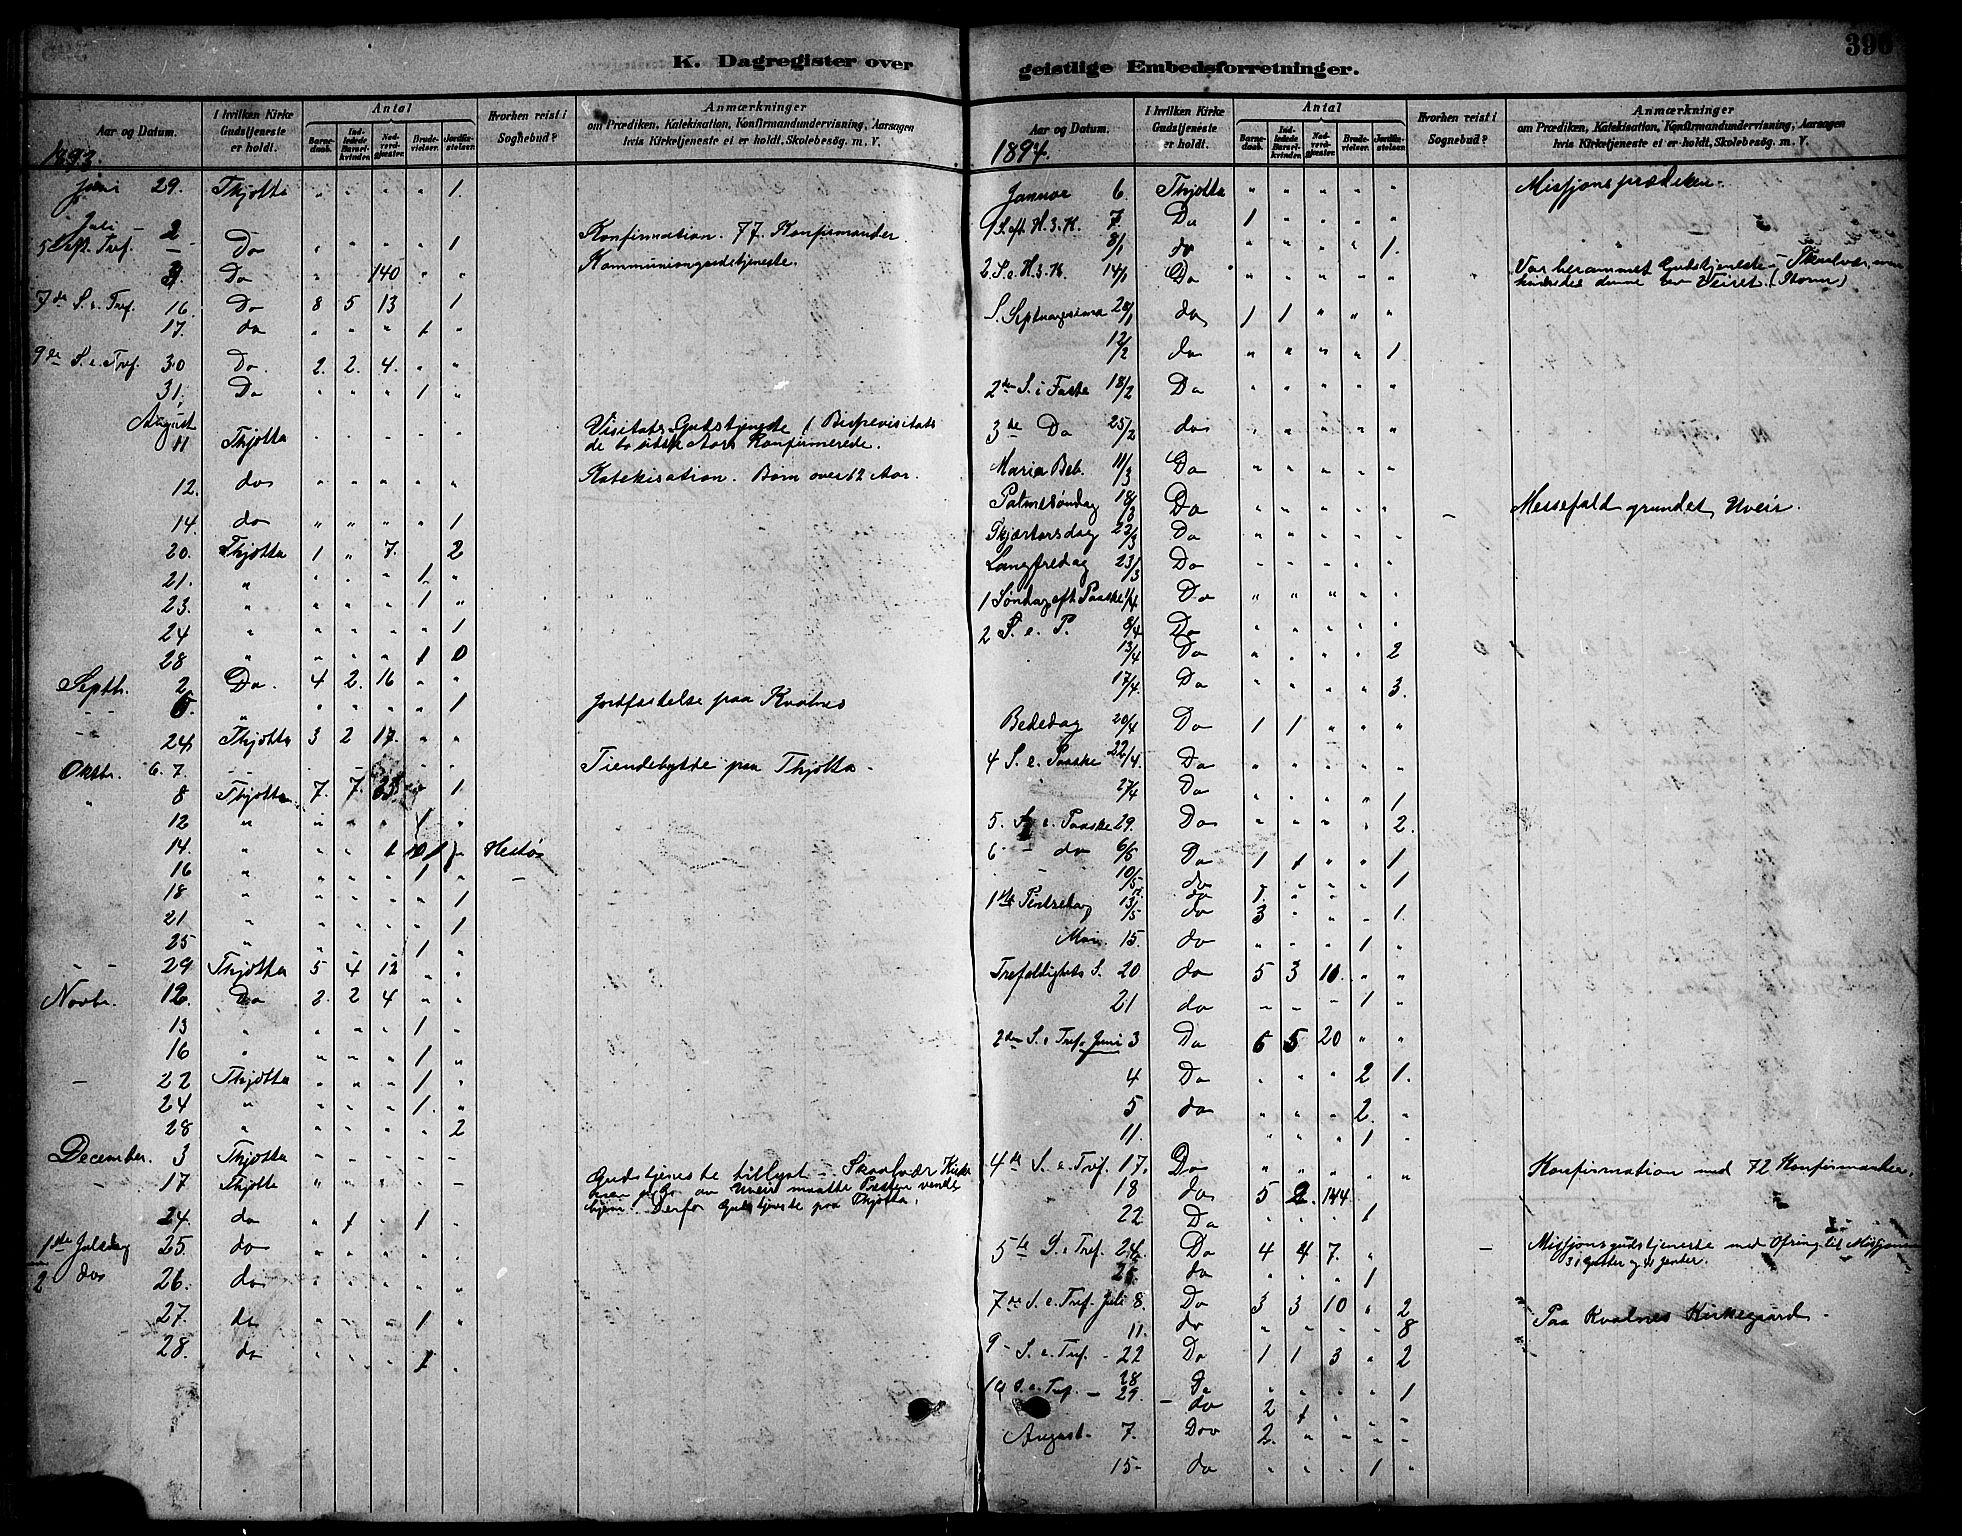 K. Dagregister over
Aar og Datum. | I hvilken Kirke Gudstjeneste er holdt. | Antal | Barnedaab. | Indledede Barselkvinder. | Nadverdgjester. | Brudevielser. | Jordfæstelser. | Hvorhen reist i Sognebud? | Anmærkninger om Prædiken, Katekisation, Konfirmandundervisning, Aarsagen hvis Kirketjeneste ei er holdt, Skolebesøg. m. V.
1893.
Juni 29. Thjøtta " " " " 1
Juli - 2
5 S. eft. Tref. - Do " " " " 1 Konfirmation. 77 Konfirmander.
Do " 140 " " Kommuniongudstjeneste.
7de S. e. Tref. 16. Do 8 5 13 " 1
17. do " " " 1 "
9de S. e. Tref. 30 Do 2. 2. 4. " "
31. Do " " " 1 "
August
11 Thjøtta " " " " " Visitats Gudstjeneste / Bispevisitats
Konfirmerede.
12. do " " " " " Katekisation. Børn over 12 Aar.
14 do " " " " 1
20. Thjøtta 1 " 7. " 2
21. " " " " 1 "
23. " " " " 1 "
24 " " " " " 1
28 " " " " 1 0
Septb. 2 Do. 4 2. 16 " "
- - 6. " " " " " 1 Jordfæstelse paa Kvalnes
- 24 Thjøtta 3 2 17. " "
Oktbr. 6. 7. - - - - - Tiendebytte paa Thjøtta -
" 8 Thjøtta 7. 7. 1
12 " " " " 1 "
14. " " " 1 Hestøs
16 " " " " 1 " -
18 " " " " " 1
21. " " " " " 1
25 " " " " 1 "
- - 29 Thjøtta 5 4 12 " "
Novbr. 12. Do 2. 2 4 " "
13 " " " " 1 "
16 " " " " 1 "
- 22 Thjøtta " " " 1 "
24 " " " " 1. "
28 " " " " " 2
December. 3 Thjøtta - - - - -
- 17 Thjøtta " " " - - Gudstjeneste tillyst - Skaalvær Kirke
Uveir maatte Præsten vende
hjem. Derfor Gudstjeneste paa Thjøtta.
24. do " 1 " 1 -
1ste Juledag 25. do " " " " "
2 do 26. do " " " " "
27. do " " " 1 "
28. do " " " 1 "
geistlige Embedsforretninger.
396
Aar og Datum. | I hvilken Kirke Gudstjeneste er holdt. | Antal | Barnedaab. | Indledede Barselkvinder. | Nadverdgjester. | Brudevielser. | Jordfæstelser. | Hvorhen reist i Sognebud? | Anmærkninger om Prædiken, Katekisation, Konfirmandundervisning, Aarsagen hvis Kirketjeneste ei er holdt, Skolebesøg. m. V.
1894.
Januar 6. Thjøtta " " " " " Missionsprædiken.
1 S. eft. H. 3. K. 7. Do 1 " " " "
8/1 do " " " " 1.
2. S. e. H. 3. K. 14/1 Do " " " " " Var berammet Gudstjeneste - Skaalvær, men
hindredes denne av Veiret. (Storm)
S. Septuagesima 28/1 do 1 1 " " "
12/2 do " " " " 1
2den S. i Faste 18/2 Do " " " " "
3de Do 25/2 do " " " " "
Maria Beb. 11/3 Do " " " " "
Palmesøndag 18/3 Do " " " " " - Messefald grundet Uveir.
Skjærtorsdag 22/3 Do " " " " "
Langfredag 23/3 Do " " " " "
1 Søndag eft Paaske 1/4 Do " " " " "
2 S. e. P. 8/4 Do " " " " "
13/4 Do " " " " 2
17/4. Do " " " " 3.
Bededag 20/4 Do 1 1 " " "
4 S. e. Paaske 22/4. Do " " " " "
27/4 Do " " " " 1
5. S. e. Paaske 29. Do " " " " 2.
6 - do 6/5 Do 1 1 " " 1
10/5 do " " " " 1
do 1. " " "
1ste Pintsedag 13/5 do 3 " " " 1.
Mai. 15. do " " " 1 "
Trefoldigheds S. 20 do 5 3 10. " "
21 do - - - 1 "
2den S. e Tref. Juni 3 Do 6 5 20 " "
4 Do " " " 2 1.
5 do " " " 2. "
11. " " " 1 "
4de S. e. Tref. 17. Do " " " " " Konfirmation med 72 Konfirmander.
18 do 5 2. 144.
22 Do " " " 1
5te S. e Tref. 24. Do 4 4 7. " - Missjonsgudstjeneste med Ofring til Missjonen
31 Gutter og 41 Jenter.
25. do " " " 1
7de S. e. Tref. Juli 8. Do 3 3 10 " 2
11. do " " " " 8 Paa Kvalnes Kirkegaard -
9 - S. e. Tref. - 22 Do 1 1 3 " 2
28 Do " " " " 1
10 S. e Tref. - 29 - do 2 1 " " "
August. 7. Do 2. " " " "
15 - do " " " 1 "